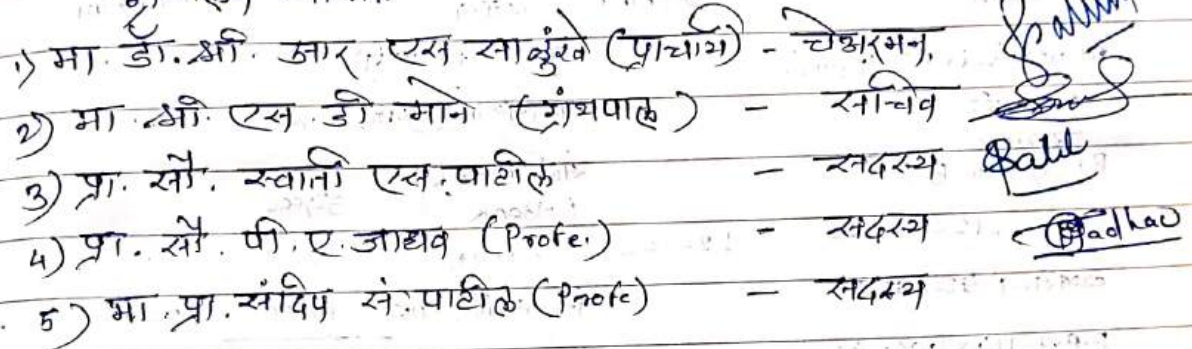 1) मा. डॉ. श्री. आर. एस. साळुंखे (प्राचार्य) - चेअरमन.
2) मा. श्री. एस. डी. माने (ग्रंथपाल) - सचिव
3) प्रा. सौ. स्वाती एस. पाटील - सदस्य Patil
4) प्रा. सौ. पी. ए. जाधव (Profe.) - सदस्य Jadhav
5) मा. प्रा. संदिप सं. पाटील (Profe) - सदस्य